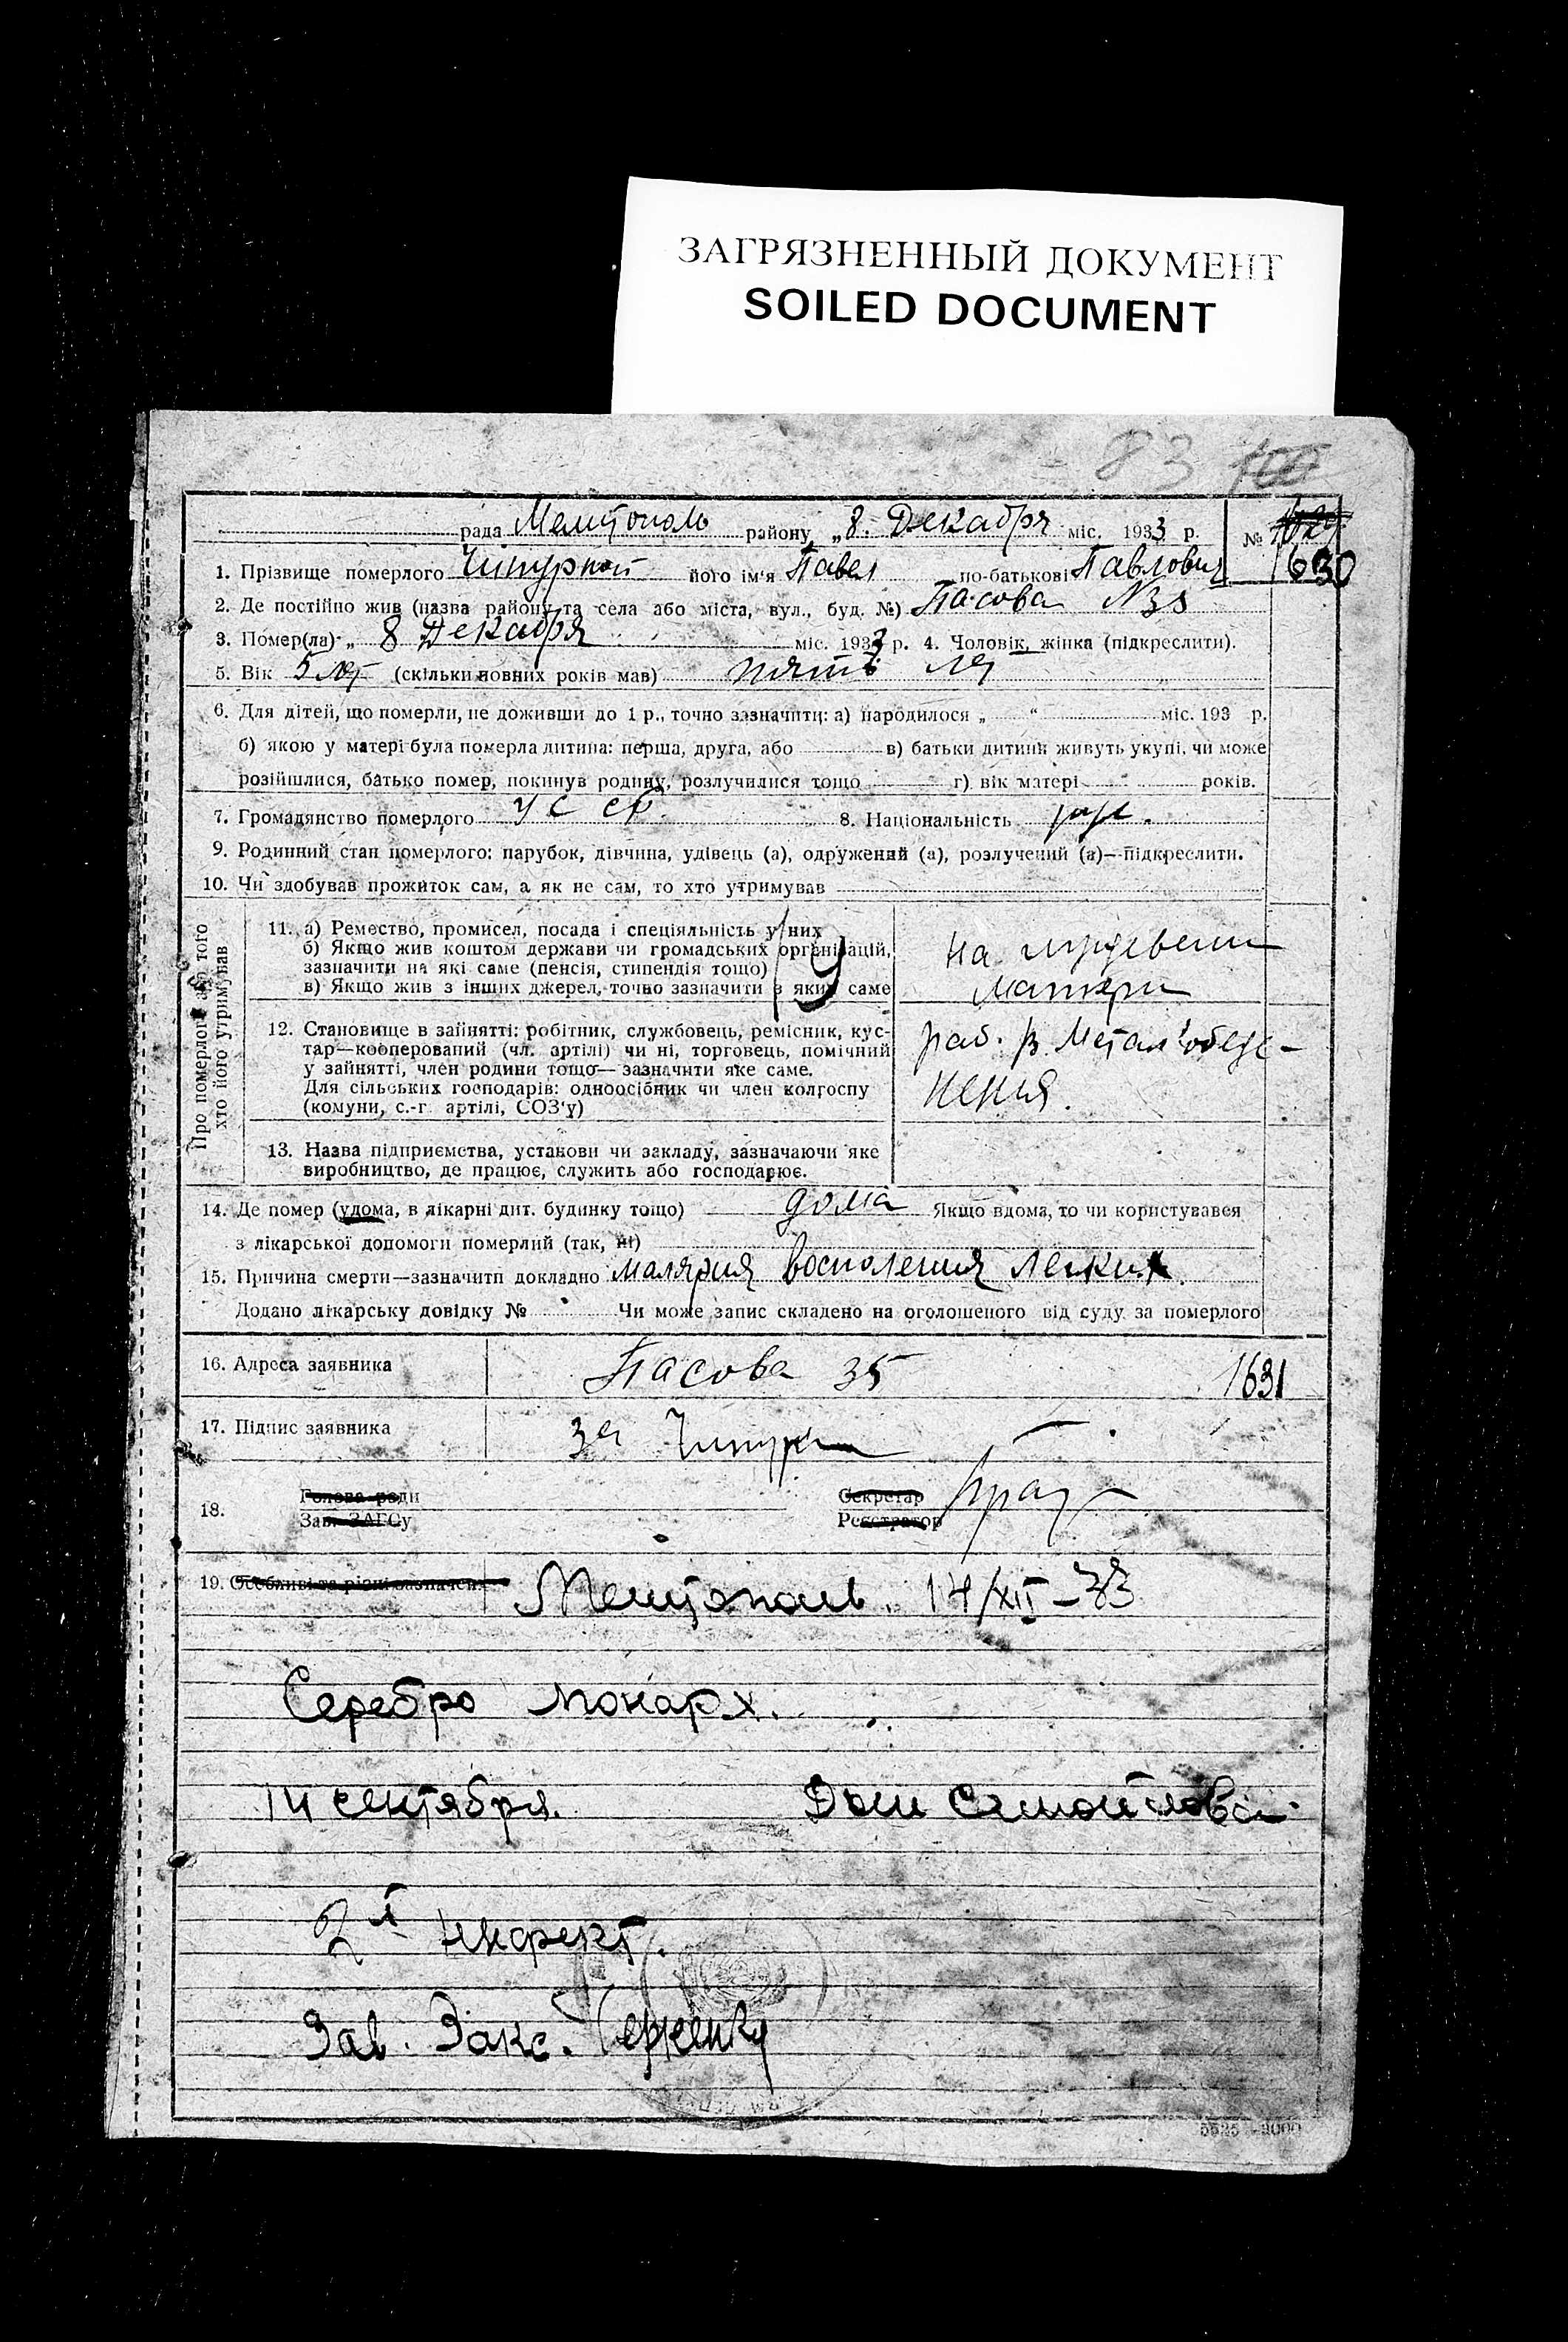 ЗАГРЯЗНЕННЫЙ ДОКУМЕНТ
SOILED DOCUMENT
83 100
рада Мелитополь району „8. Декабря міс. 1933 р. №
1630
1. Прізвище померлого Чипурной його ім'я Павел по-батькові Павлович
2. Де постійно жив (назва району та села або міста, вул., буд. №) Пасова
3. Помер(ла) „ 8 Декабря міс. 1933 р. 4. Чоловік, жінка (підкреслити).
5. Вік 5 лет (скільки повних років мав) пять лет
6. Для дітей, що померли, не доживши до 1 р., точно зазначити: а) народилося „ “ міс. 193 р.
б) якою у матері була померла дитина: перша, друга, або в) батьки дитини живуть укупі, чи може
розійшлися, батько помер, покинув родину, розлучилися тощо г) вік матері років.
7. Громадянство померлого УССР. 8. Національність
9. Родинний стан померлого: парубок, дівчина, удівець (а), одружений (а), розлучений (а)—підкреслити.
10. Чи здобував прожиток сам, а як не сам, то хто утримував
Про померлого або того хто його утримував
11. а) Ремество, промисел, посада і спеціяльність у них
б) Якщо жив коштом держави чи громадських організацій,
зазначити на які саме (пенсія, стипендія тощо)
в) Якщо жив з інших джерел, точно зазначити з яких саме
19
на иждевении
матери
12. Становище в зайнятті: робітник, службовець, ремісник, кус-
тар—кооперований (чл. артілі) чи ні, торговець, помічний
у зайнятті, член родини тощо—зазначити яке саме.
Для сільських господарів: одноосібник чи член колгоспу
(комуни, с.-г. артілі, СОЗ'у)
раб. в Метал
нения.
13. Назва підприємства, установи чи закладу, зазначаючи яке
виробництво, де працює, служить або господарює.
14. Де помер (удома, в лікарні дит. будинку тощо) дома Якщо вдома, то чи користувався
з лікарської допомоги померлий (так, ні)
15. Причина смерти—зазначити докладно малярия восполения легких.
Додано лікарську довідку № Чи може запис складено на оголошеного від суду за померлого
16. Адреса заявника Пасова 35 1631
17. Підпис заявника за
18. Голова ради Секретар
Зав. ЗАГСу Реєстратор
19. Особливі та різні зазначен. Мелитополь. 14/XII-33
Серебро монарх.
14 сентября.
Зав. Закс.
5525 -3000